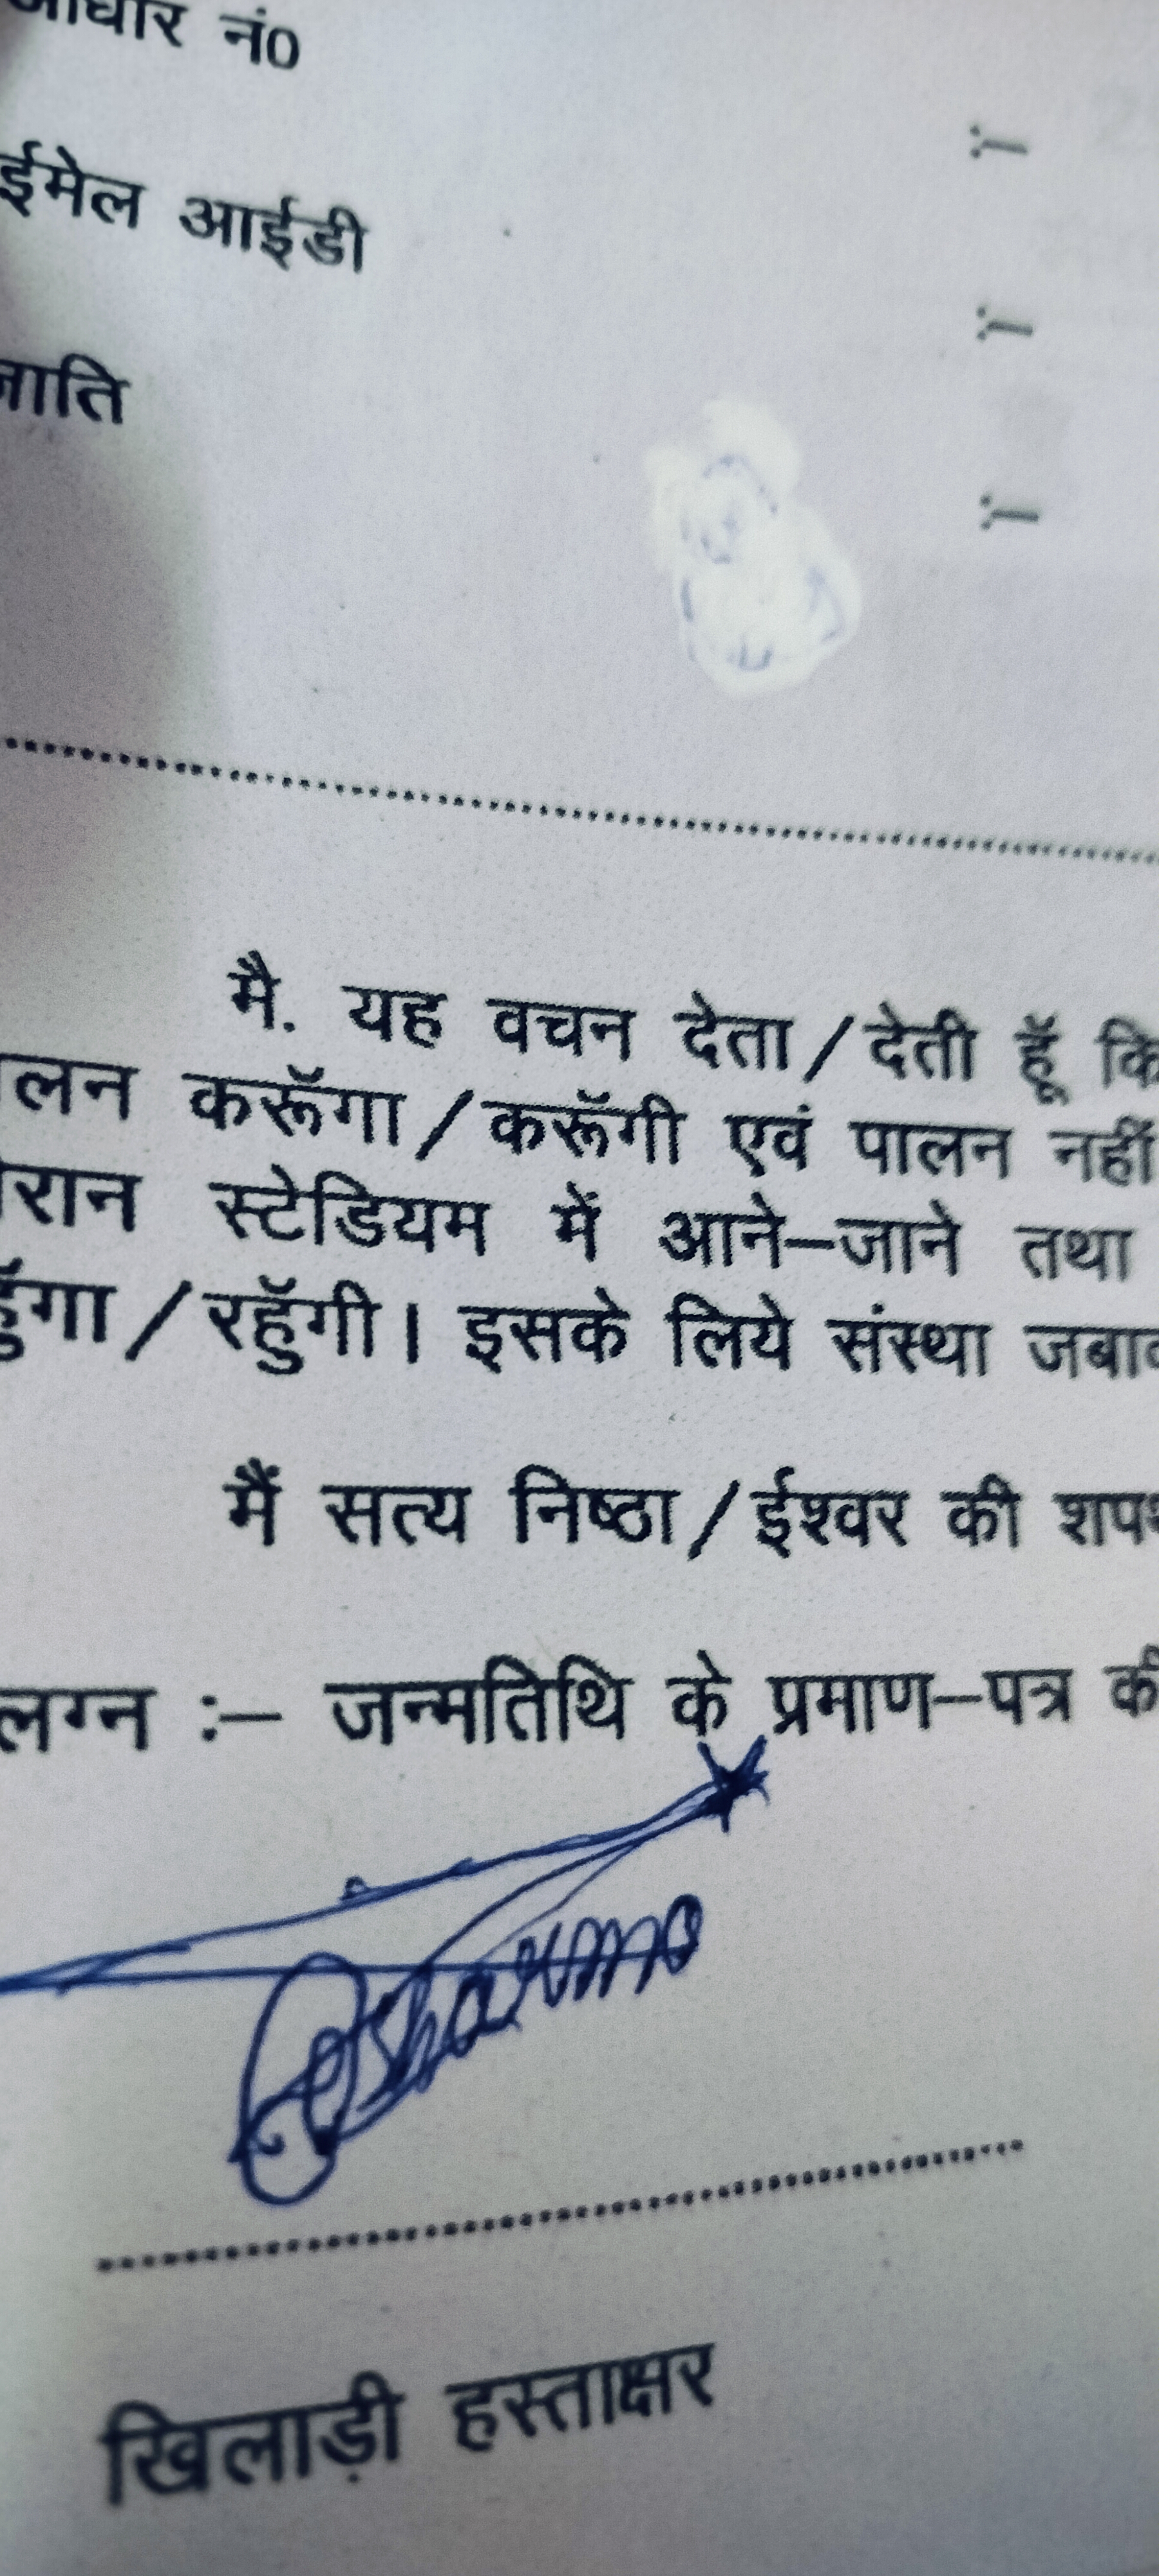 आधार नं0 :-
ईमेल आईडी :-
जाति :-
मै. यह वचन देता/देती हूॅ कि
लन करूॅगा/करूॅगी एवं पालन नहीं
रान स्टेडियम में आने-जाने तथा
हुॅगा/रहुॅगी। इसके लिये संस्था
मैं सत्य निष्ठा/ईश्वर की
लग्न :- जन्मतिथि के प्रमाण-पत्र की
Sharma
खिलाड़ी हस्ताक्षर